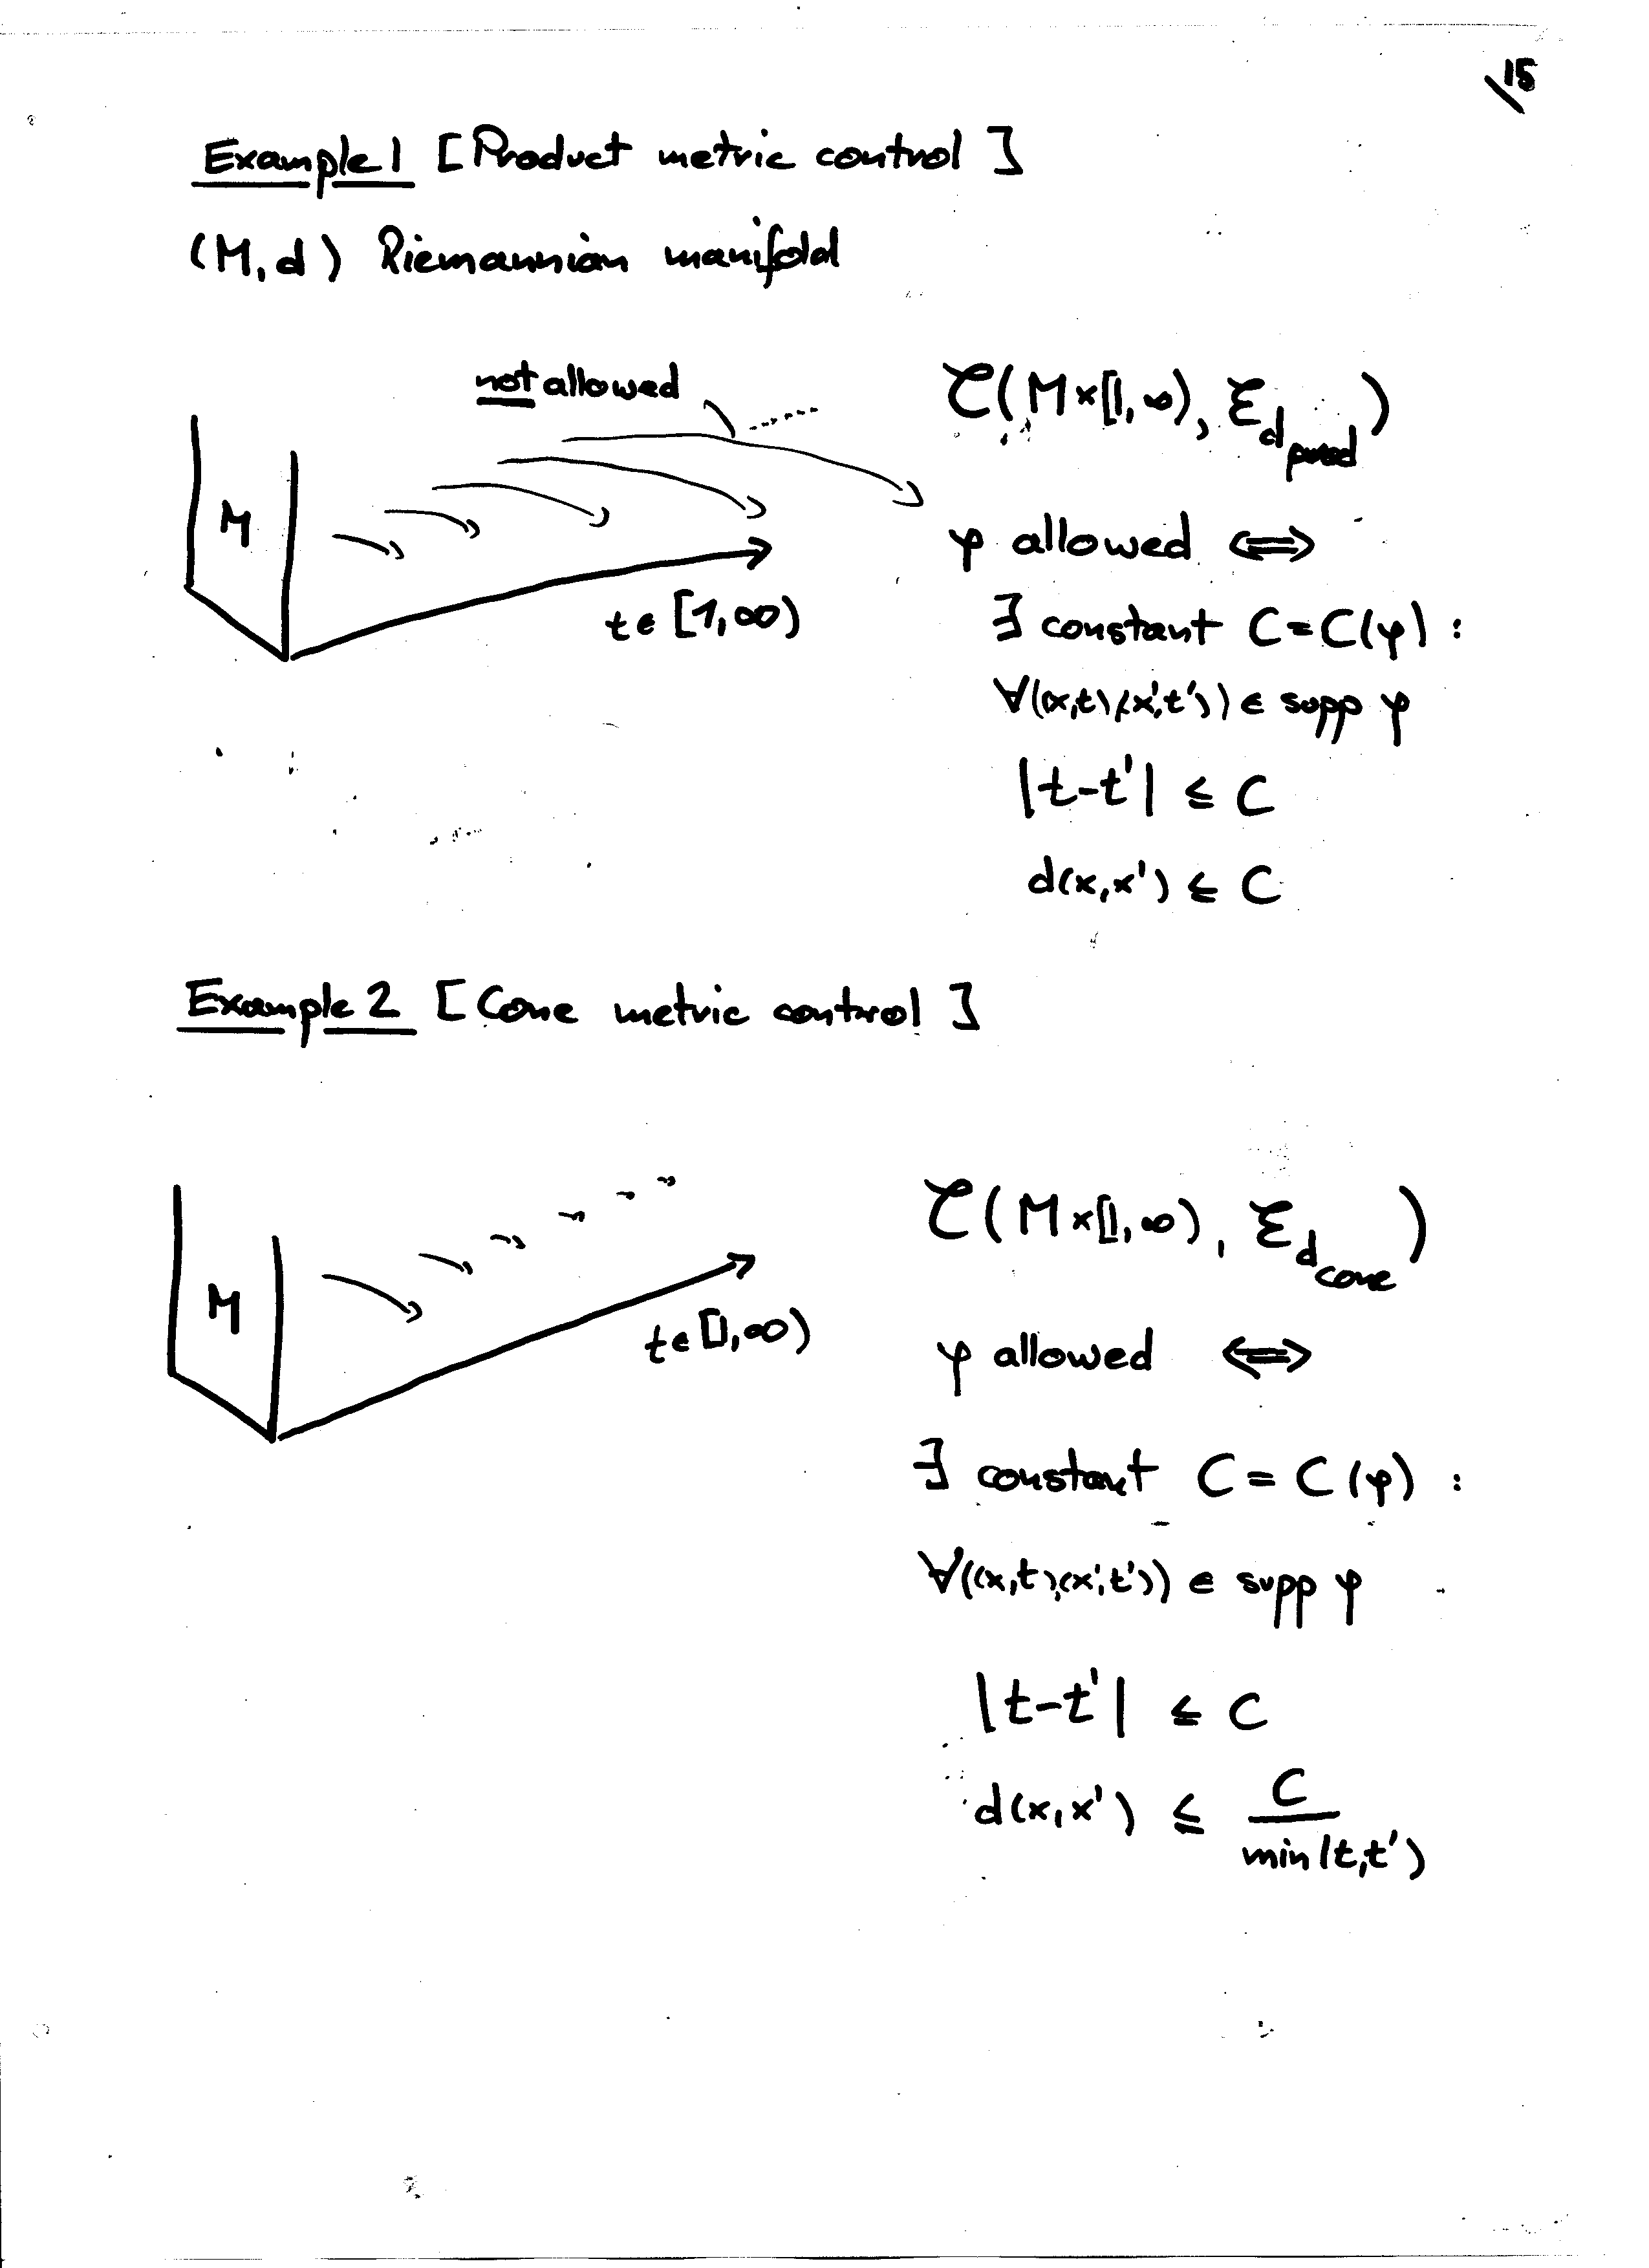 15
Example 1 [Product metric control]
(M, d) Riemannian manifold
not allowed
M
t ∈ [1, ∞)
𝒞(M × [1, ∞), ℰ_{d_prod})
φ allowed ⟺
∃ constant C = C(φ) :
∀((x,t),(x',t')) ∈ supp φ
|t-t'| ≤ C
d(x,x') ≤ C
Example 2 [Cone metric control]
M
t ∈ [1, ∞)
𝒞(M × [1, ∞), ℰ_{d_cone})
φ allowed ⟺
∃ constant C = C(φ) :
∀((x,t),(x',t')) ∈ supp φ
|t-t'| ≤ C
d(x,x') ≤ C / min(t,t')